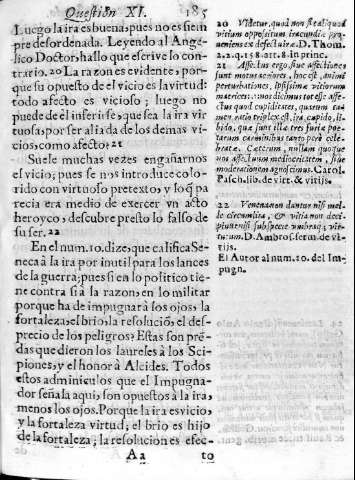 Questión XI. 185
Luego la ira es buena, pues no es siem
pre desordenada. Leyendo al Ange-
lico Doctor, hallo que escrive lo con-
trario. 20 La razon es evidente, por-
que su opuesto de el vicio es la virtud:
todo afecto es vicioso; luego no
puede de èl inferirse, que sea la ira vir
tuosa, por ser aliada de los demas vi-
cios, como afecto. 21
Suele muchas vezes engañarnos
el vicio, pues se nos introduce colo-
rido con virtuoso pretexto, y lo q̃ pa
recia era medio de exercer vn acto
heroyco, descubre presto lo falso de
su ser. 22
En el num. 10. dize, que califica Se-
neca à la ira por inutil para los lances
de la guerra; pues si en lo politico tie-
ne contra si à la razon, en lo militar
porque ha de impugnar à los ojos, la
fortaleza, el brio, la resoluciõ, el des-
precio de los peligros; Estas son prẽ-
das que dieron los laureles à los Sci-
piones, y el honor à Alcides. Todos
estos adminiculos que el Impugna-
dor señala aqui, son opuestos à la ira,
menos los ojos. Porque la ira es vicio,
y la fortaleza virtud; el brio es hijo
de la fortaleza; la resolucion es efec-
Aa to
20 Videtur, quod non sit aliquod
vitium oppositum iracundiæ pro-
ueniens ex defectu iræ. D. Thom.
2. 2. q. 158. art. 8. in princ.
21 Affectus ergo, sive affectiones
sunt motus acriores, hoc est, animi
perturbationes, ipsissima vitiorum
materies:
ctus quod cupiditates, quarum ta-
men ratio triplex est, ira, cupido, li-
bido, quæ sunt illæ tres furiæ poe-
tarum carminibus tanto perè cele-
bratæ. Cæterum, nullam quoque
nos affectuum mediocritatem, sive
moderationem agnoscimus. Carol.
Pasch. lib. de virt. & vitijs.
22 Venenum non dantur nisi mel-
le circumlita, & vitia non deci-
piunt nisi sub specie umbraq; vir-
tutum. D. Ambros. serm. de vi-
tijs.
El Autor al num. 10. del Im-
pugn.